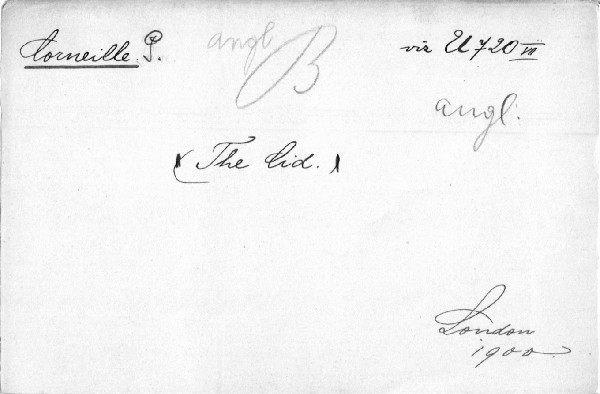 Corneille P. angl B viz U 720 VII
angl.
(The Cid.)
London
1900